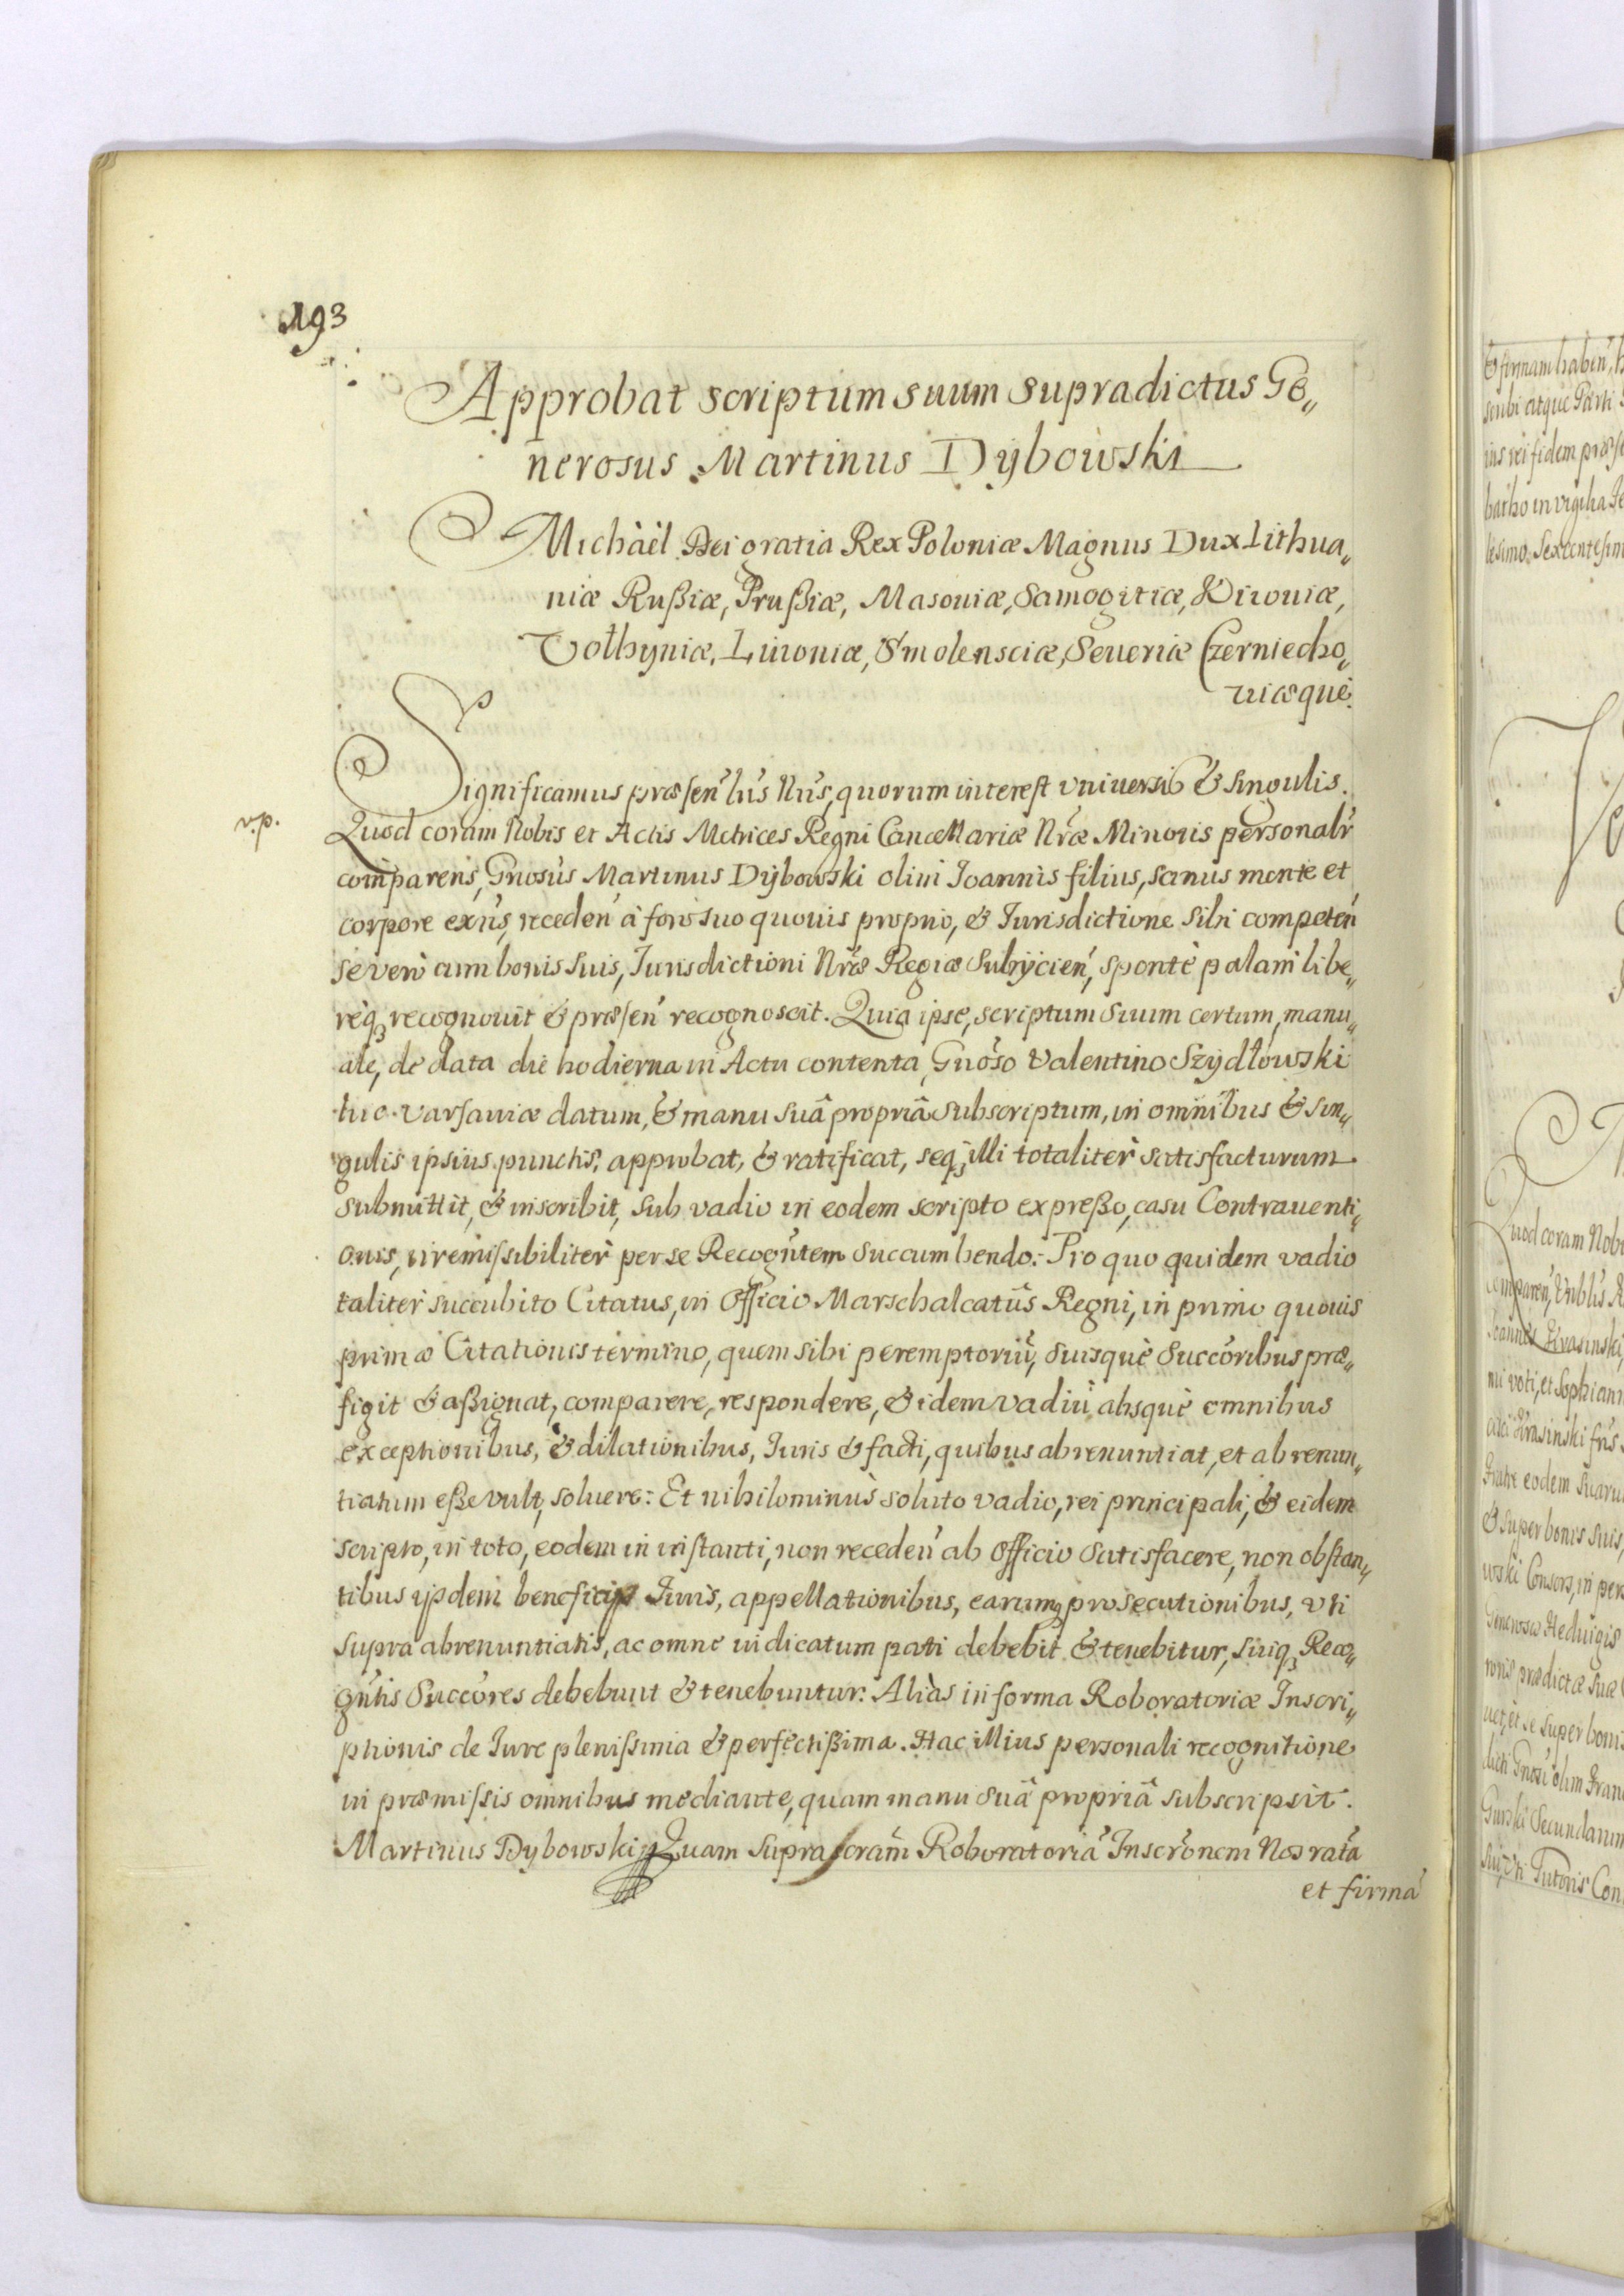 193
Approbat scriptum suum supradictus Ge„
nerosus Martinus Dybowski
Michàèl Dei gratia Rex Poloniæ Magnus Dux Lithua„
niæ Rußiæ, Prußiæ, Masouiæ, Samogitiæ, Kiiouiæ,
Volhyniæ, Liuoniæ, Smolensciæ, Seueriæ Czerniecho„
uiæque.
Significamus præsen̄ lrīs Nrīs, quorum interest vniuersis & singulis.
v.p.
Quod coram Nobis et Actis Metrices Regni Cancellariæ Nrǣ Minoris personalr̄
comparens, Gnosus Martinus Dybowski olim Joannis filius, sanus mente et
corpore exns, receden̄ à foro suo quouis proprio, & Jurisdictione sibi competen̄
se verò cum bonis suis, Jurisdictioni Nrǣ Regiæ subijcien̄, spontè palam libe„
rèq₃ recognouit & præsen̄ recognoscit. Quia ipse, scriptum suum certum, manu„
ale, de data die hodierna in Actu contenta, Gnōso Valentino Szydłowski
hic Varsauiæ datum, & manu suâ propriâ subscriptum, in omnibus & sin„
gulis ipsius punctis, approbat, & ratificat, seq₃ illi totaliter satisfacturum
submittit, & inscribit, sub vadio in eodem scripto expreßo, casu Contrauenti„
onis, irremissibiliter per se Recogn̄tem succumbendo: Pro quo quidem vadio
taliter succubito Citatus, in Officio Marschalcatūs Regni, in primo quouis
primæ Citationis termino, quem sibi peremptoriū, suisquè Succōribus præ„
figit & aßignat, comparere, respondere, & idem vadiū absquè omnibus
exceptionibus, & dilationibus, Juris & facti, quibus abrenuntiat, et abrenun„
tiatum eße vult, soluere: Et nihilominùs soluto vadio, rei principali, & eidem
scripto, in toto, eodem in instanti, non receden̄ ab Officio satisfacere, non obstan„
tibus ijsdem beneficijs Juris, appellationibus, earumq₃ prosecutionibus, vti
supra abrenuntiatis, ac omne iudicatum pati debebit & tenebitur, suiq₃ Reco„
gn̄tis Succōres debebunt & tenebuntur. Aliàs in forma Roboratoriæ Inscri„
ptionis de Jure plenissima & perfectißima. Hac illius personali recognitione
in præmissis omnibus mediante, quam manu suâ propriâ subscripsit.
Martinus Dybowski Quam supra scrām Roboratoriā Inscrōnem Nos ratā
et firmā